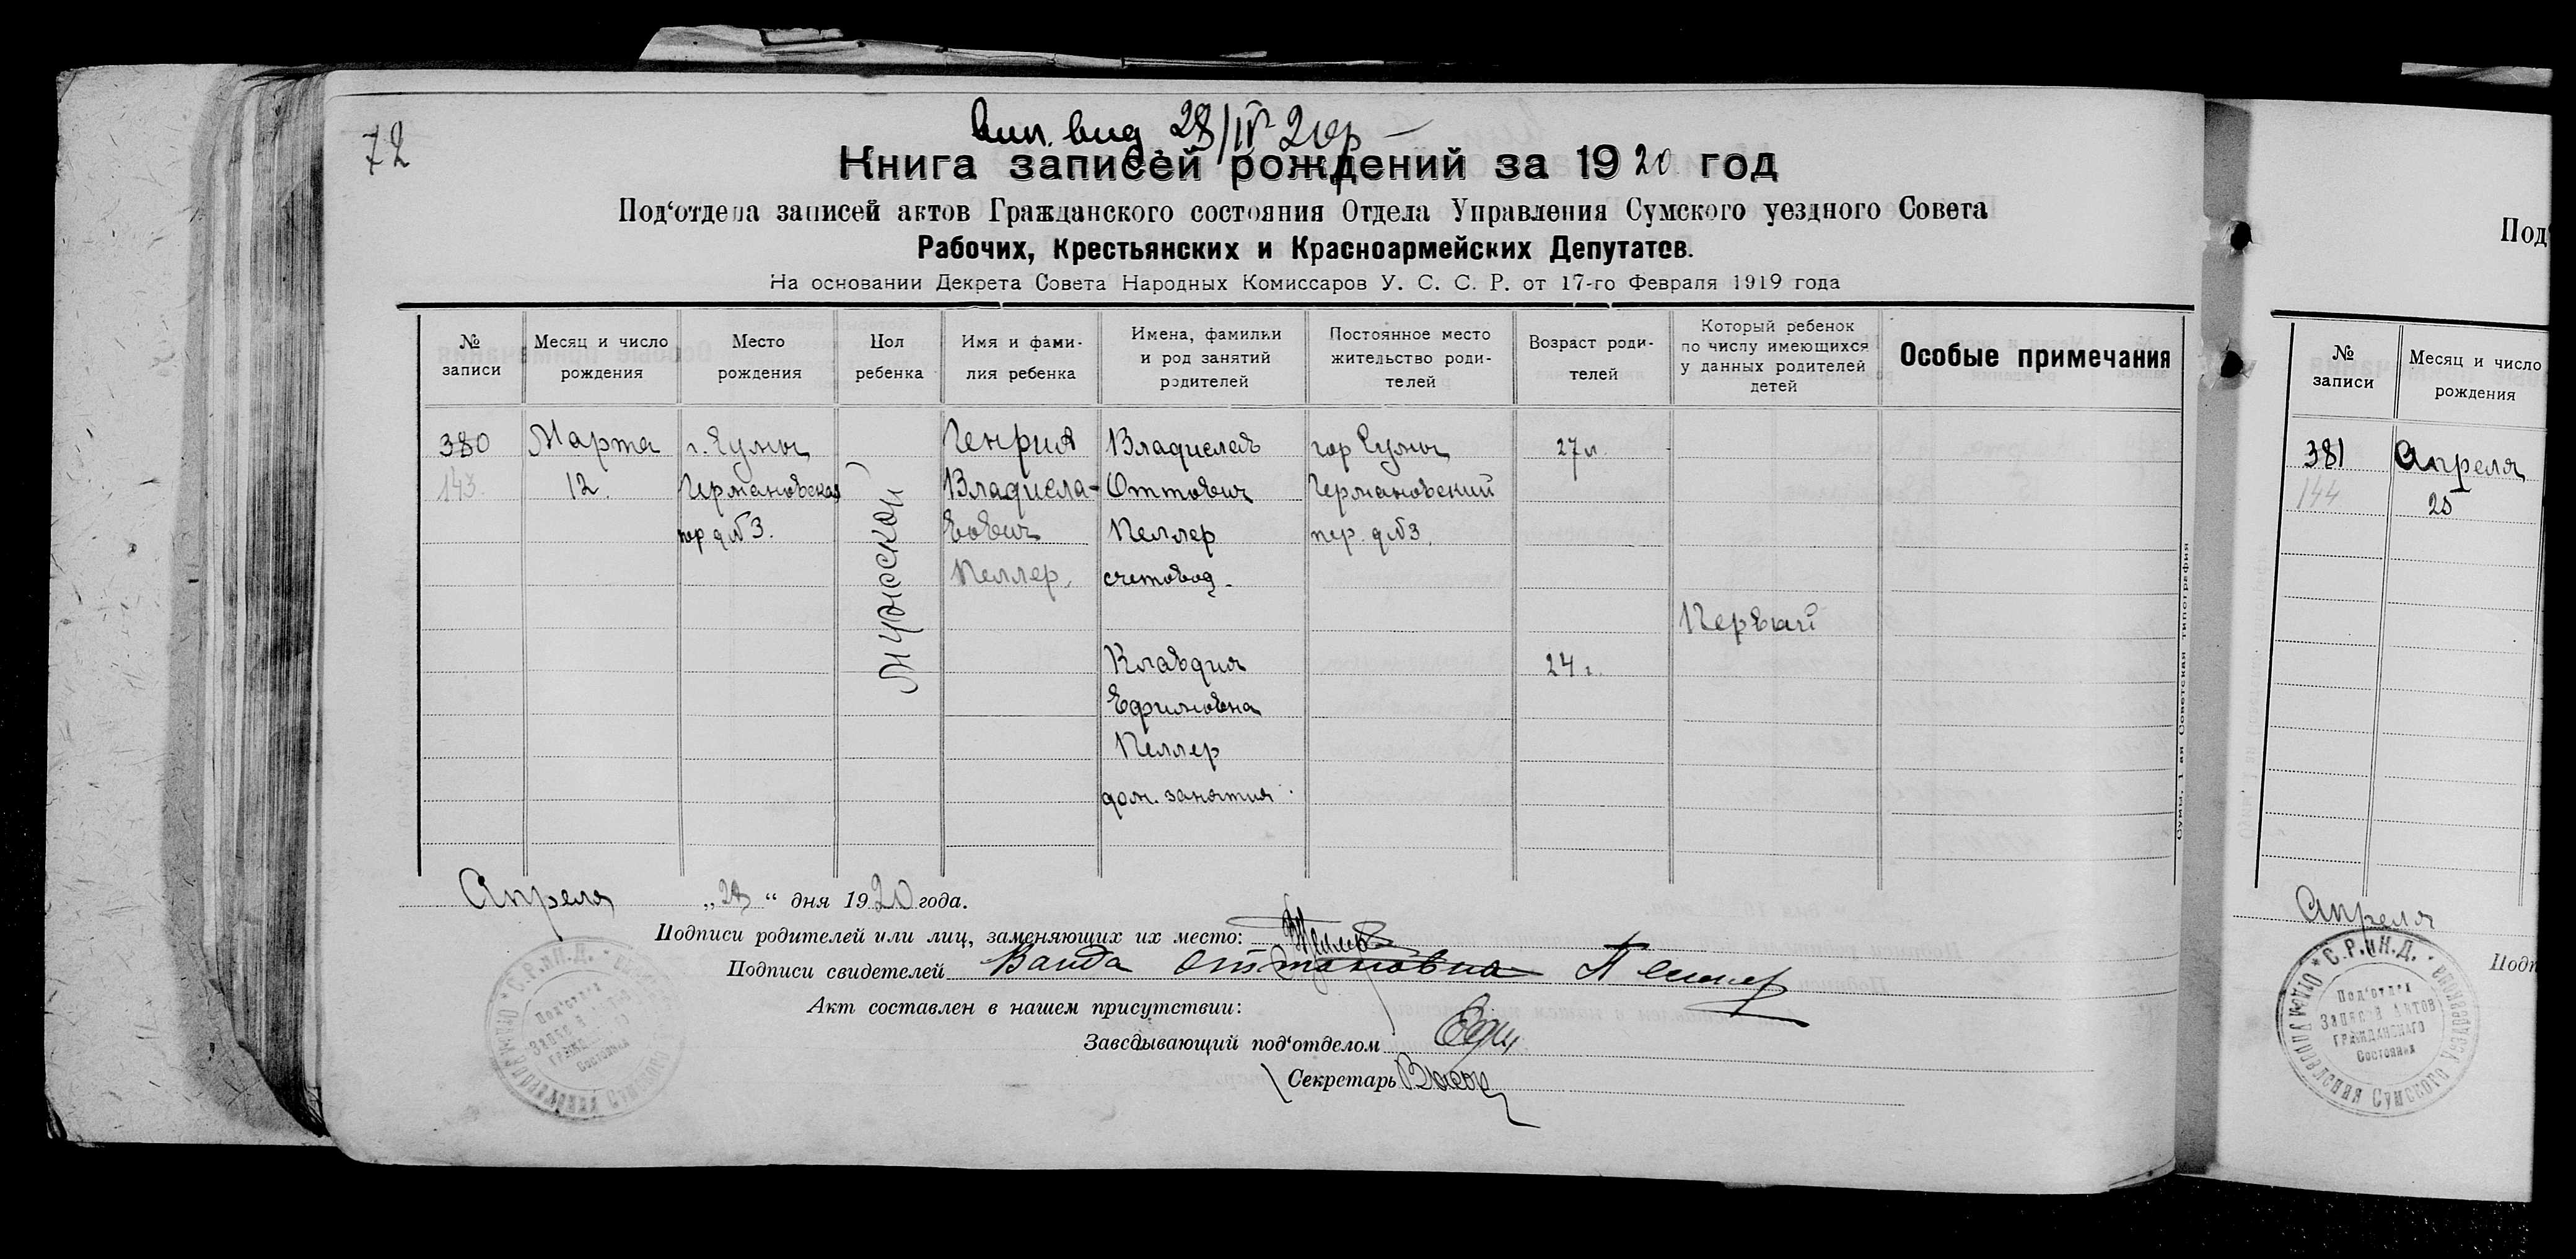 72
Вип. вид. 28/IV 20 р
Книга записей рождений за 1920 год
Под‘отдела записей актов Гражданского состояния Отдела Управления Сумского уездного Совета
Рабочих, Крестьянских и Красноармейских Депутатов.
На основании Декрета Совета Народных Комиссаров У. С. С. Р. от 17-го Февраля 1919 года
№ записи
Месяц и число рождения
Место рождения
Пол ребенка
Имя и фами-
лия ребенка
Имена, фамилии
и род занятий
родителей
Постоянное место
жительство роди-
телей
Возраст роди-
телей
Который ребенок
по числу имеющихся
у данных родителей
детей
Особые примечания
380
143.
Марта
12.
г. Сумы
Германовская
пер д № 3.
Мужской
Генрих
Владисла-
вович
Пеллер,
Владислав
Оттович
Пеллер
счетовод.
Клавдия
Ефимовна
Пеллер
дом. занятия.
гор Сумы
Германовский
пер. д № 3.
27 л.
24 г.
Первый
Сумы, 1 ая Советская типография
Апреля „28“ дня 1920 года.
Подписи родителей или лиц, заменяющих их место: Пеллер
Подписи свидетелей Ванда Оттоновна Пеллер
Акт составлен в нашем присутствии:
Заведывающий под‘отделом
Секретарь
С.Р.иК.Д.
Под‘отдел
Записей Актов
Гражданскаго
Состояния
Под‘
№
записи
Месяц и число
рождения
381
144
Апреля
25
Апреля
Подп
С.Р.иК.Д.
Под‘отдел
Записей Актов
Гражданскаго
Состояния
Отдел Управления Сумского Уездревкома